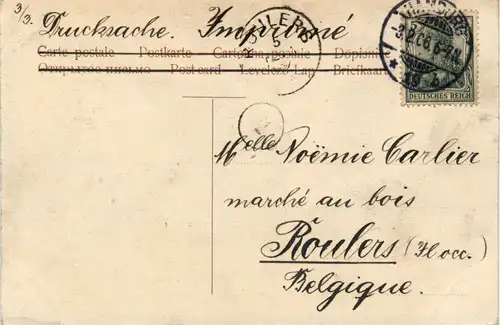 3/3.
Drucksache. Imprimé
Carte postale Postkarte Cartolina postale Dopisnice
Открытое письмо Post card Levelező-Lap Briefkaart
ROULERS
5
HAMBURG
3.2.06. 6-7N.
DEUTSCHES REICH
Melle Noëmie Carlier
marché au bois
Roulers (Fl occ.)
Belgique.